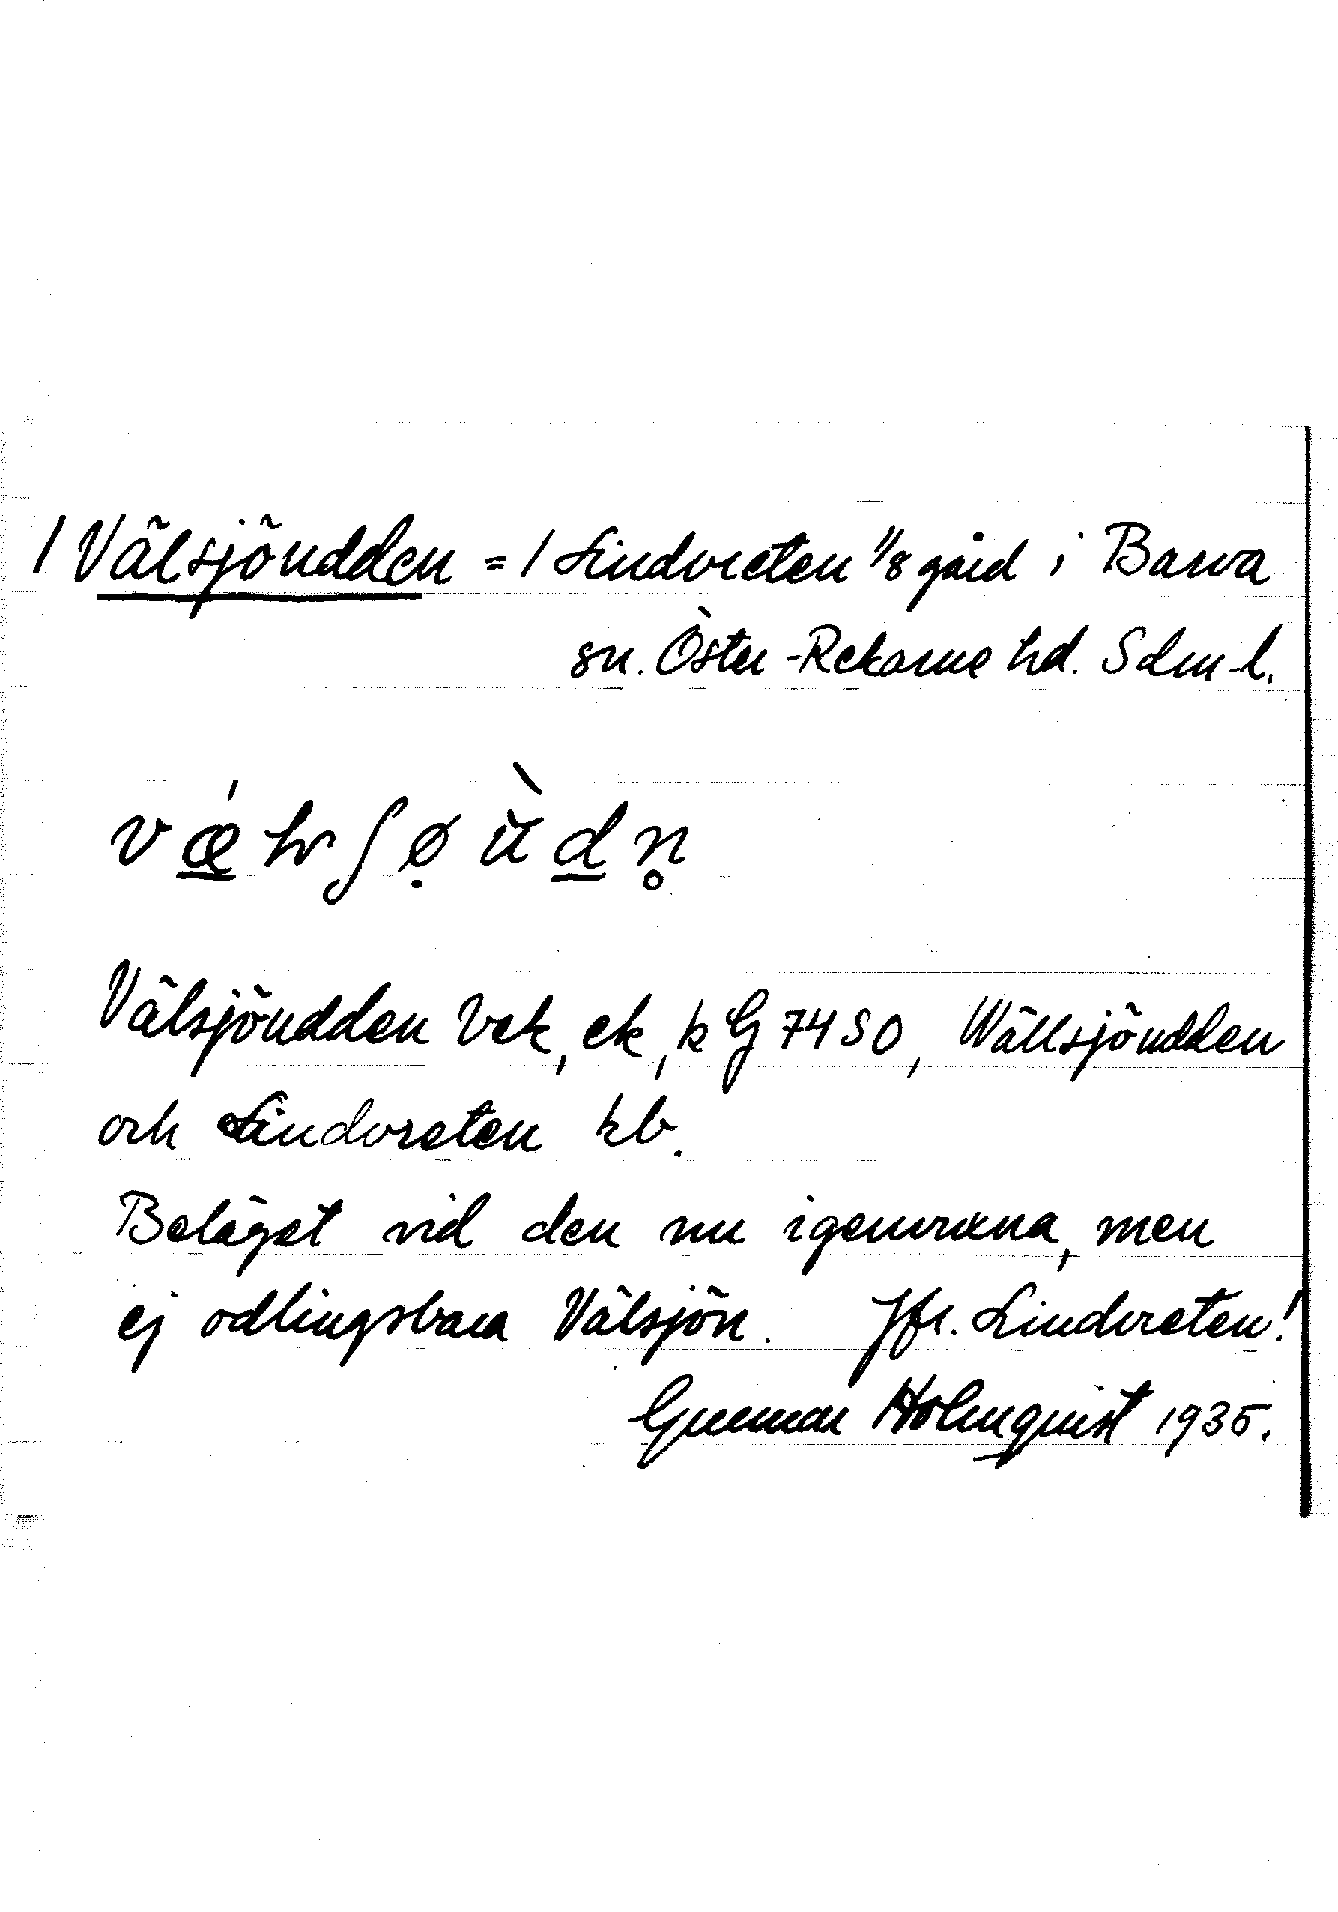 / Välsjöudden = / Lindvreten 1/8 gård i Barva
sn. Öster-Rekarne hd. Sdm-l.
Välsjöudden Vek, ek, k G 74 SO, Wällsjöudden
och Lindvreten kb.
Beläget vid den nu igenvuxna, men
ej odlingsbara Välsjön. Jfr. Lindvreten!
Gunnar Holmquist 1935.